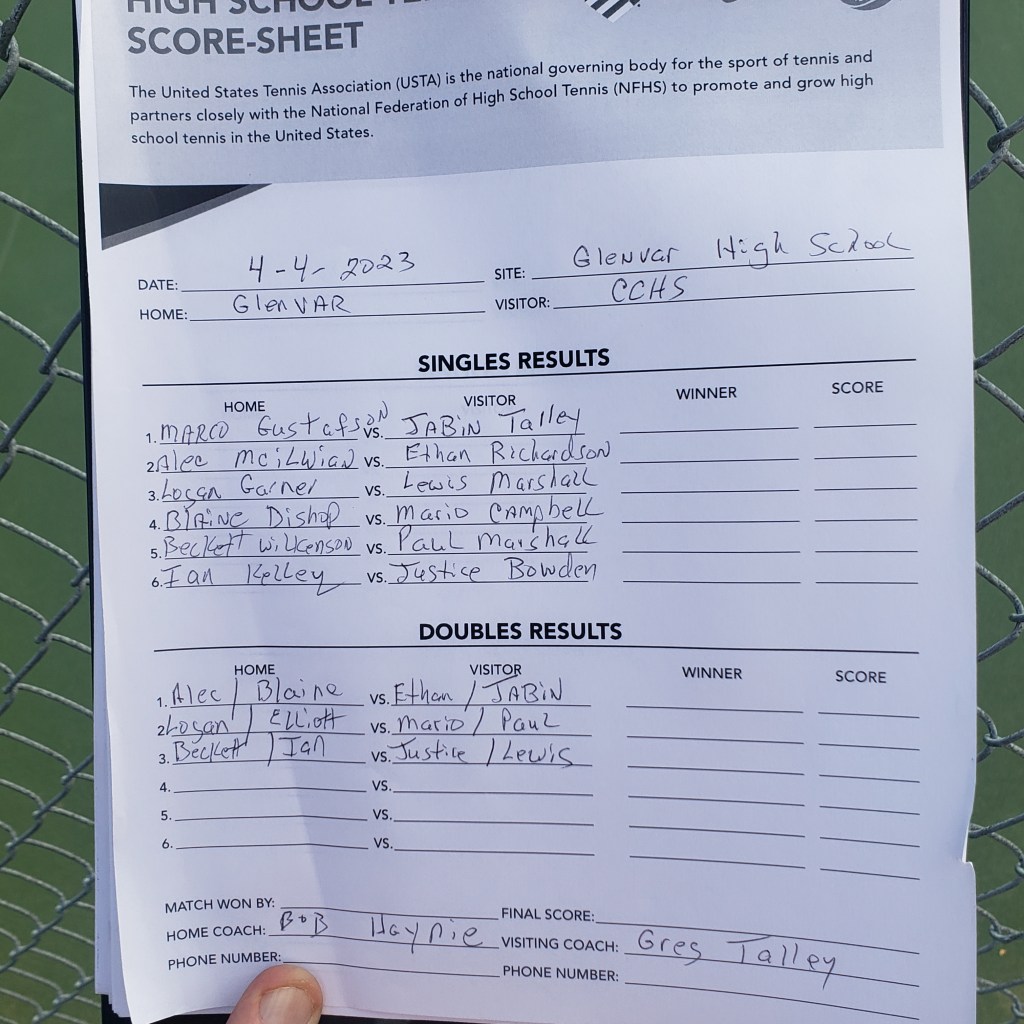 HIGH SCHOOL
SCORE-SHEET
The United States Tennis Association (USTA) is the national governing body for the sport of tennis and
partners closely with the National Federation of High School Tennis (NFHS) to promote and grow high
school tennis in the United States.
DATE: 4-4-2023 SITE: Glenvar High School
HOME: GlenVAR VISITOR: CCHS
SINGLES RESULTS
HOME VISITOR WINNER SCORE
1. MARCO Gustafson VS. JABiN Talley
2. Alec McilWian VS. Ethan Richardson
3. Logan Garner VS. Lewis Marshall
4. Blaine Dishop VS. Mario Campbell
5. Beckett Wilkenson VS. Paul Marshall
6. Ian Kelley VS. Justice Bowden
DOUBLES RESULTS
HOME VISITOR WINNER SCORE
1. Alec / Blaine VS. Ethan / JABiN
2. Logan / Elliott VS. Mario / Paul
3. Beckett / Ian VS. Justice / Lewis
4. VS.
5. VS.
6. VS.
MATCH WON BY: FINAL SCORE:
HOME COACH: BoB Haynie VISITING COACH: Greg Talley
PHONE NUMBER: PHONE NUMBER: